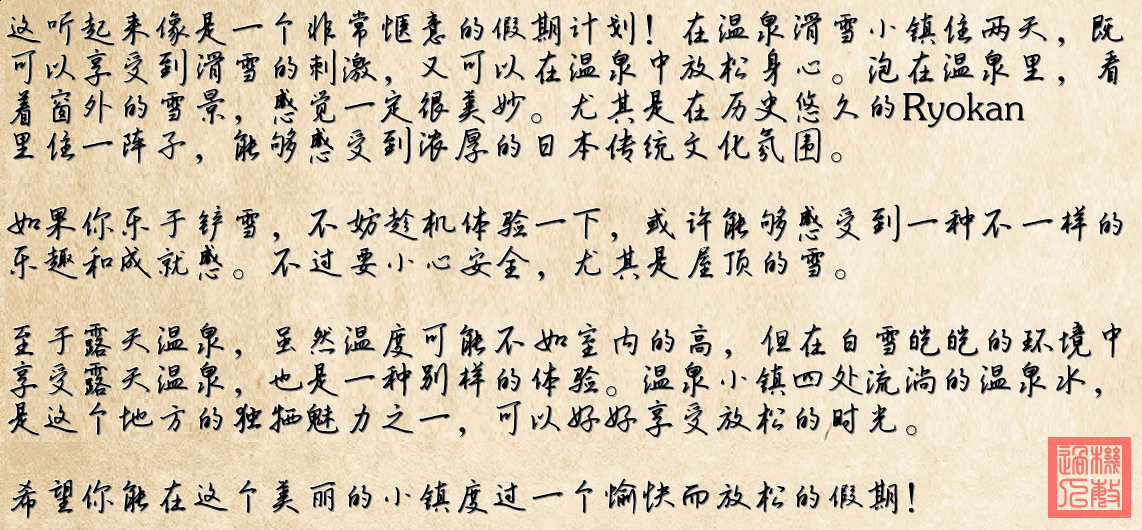 这听起来像是一个非常惬意的假期计划！在温泉滑雪小镇住两天，既
可以享受到滑雪的刺激，又可以在温泉中放松身心。泡在温泉里，看
着窗外的雪景，感觉一定很美妙。尤其是在历史悠久的Ryokan
里住一阵子，能够感受到浓厚的日本传统文化氛围。
如果你乐于铲雪，不妨趁机体验一下，或许能够感受到一种不一样的
乐趣和成就感。不过要小心安全，尤其是屋顶的雪。
至于露天温泉，虽然温度可能不如室内的高，但在白雪皑皑的环境中
享受露天温泉，也是一种别样的体验。温泉小镇四处流淌的温泉水，
是这个地方的独特魅力之一，可以好好享受放松的时光。
希望你能在这个美丽的小镇度过一个愉快而放松的假期！